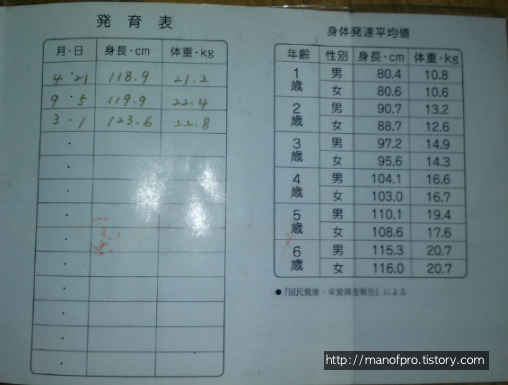 発育表
月・日 身長・cm 体重・kg
4・21 118.9 21.2
9・5 119.9 22.4
3・1 123.6 22.8
身体発達平均値
年齢 性別 身長・cm 体重・kg
1歳 男 80.4 10.8
女 80.6 10.6
2歳 男 90.7 13.2
女 88.7 12.6
3歳 男 97.2 14.9
女 95.6 14.3
4歳 男 104.1 16.6
女 103.0 16.7
5歳 男 110.1 19.4
女 108.6 17.6
6歳 男 115.3 20.7
女 116.0 20.7
●『国民健康・栄養調査報告』による
http://manofpro.tistory.com